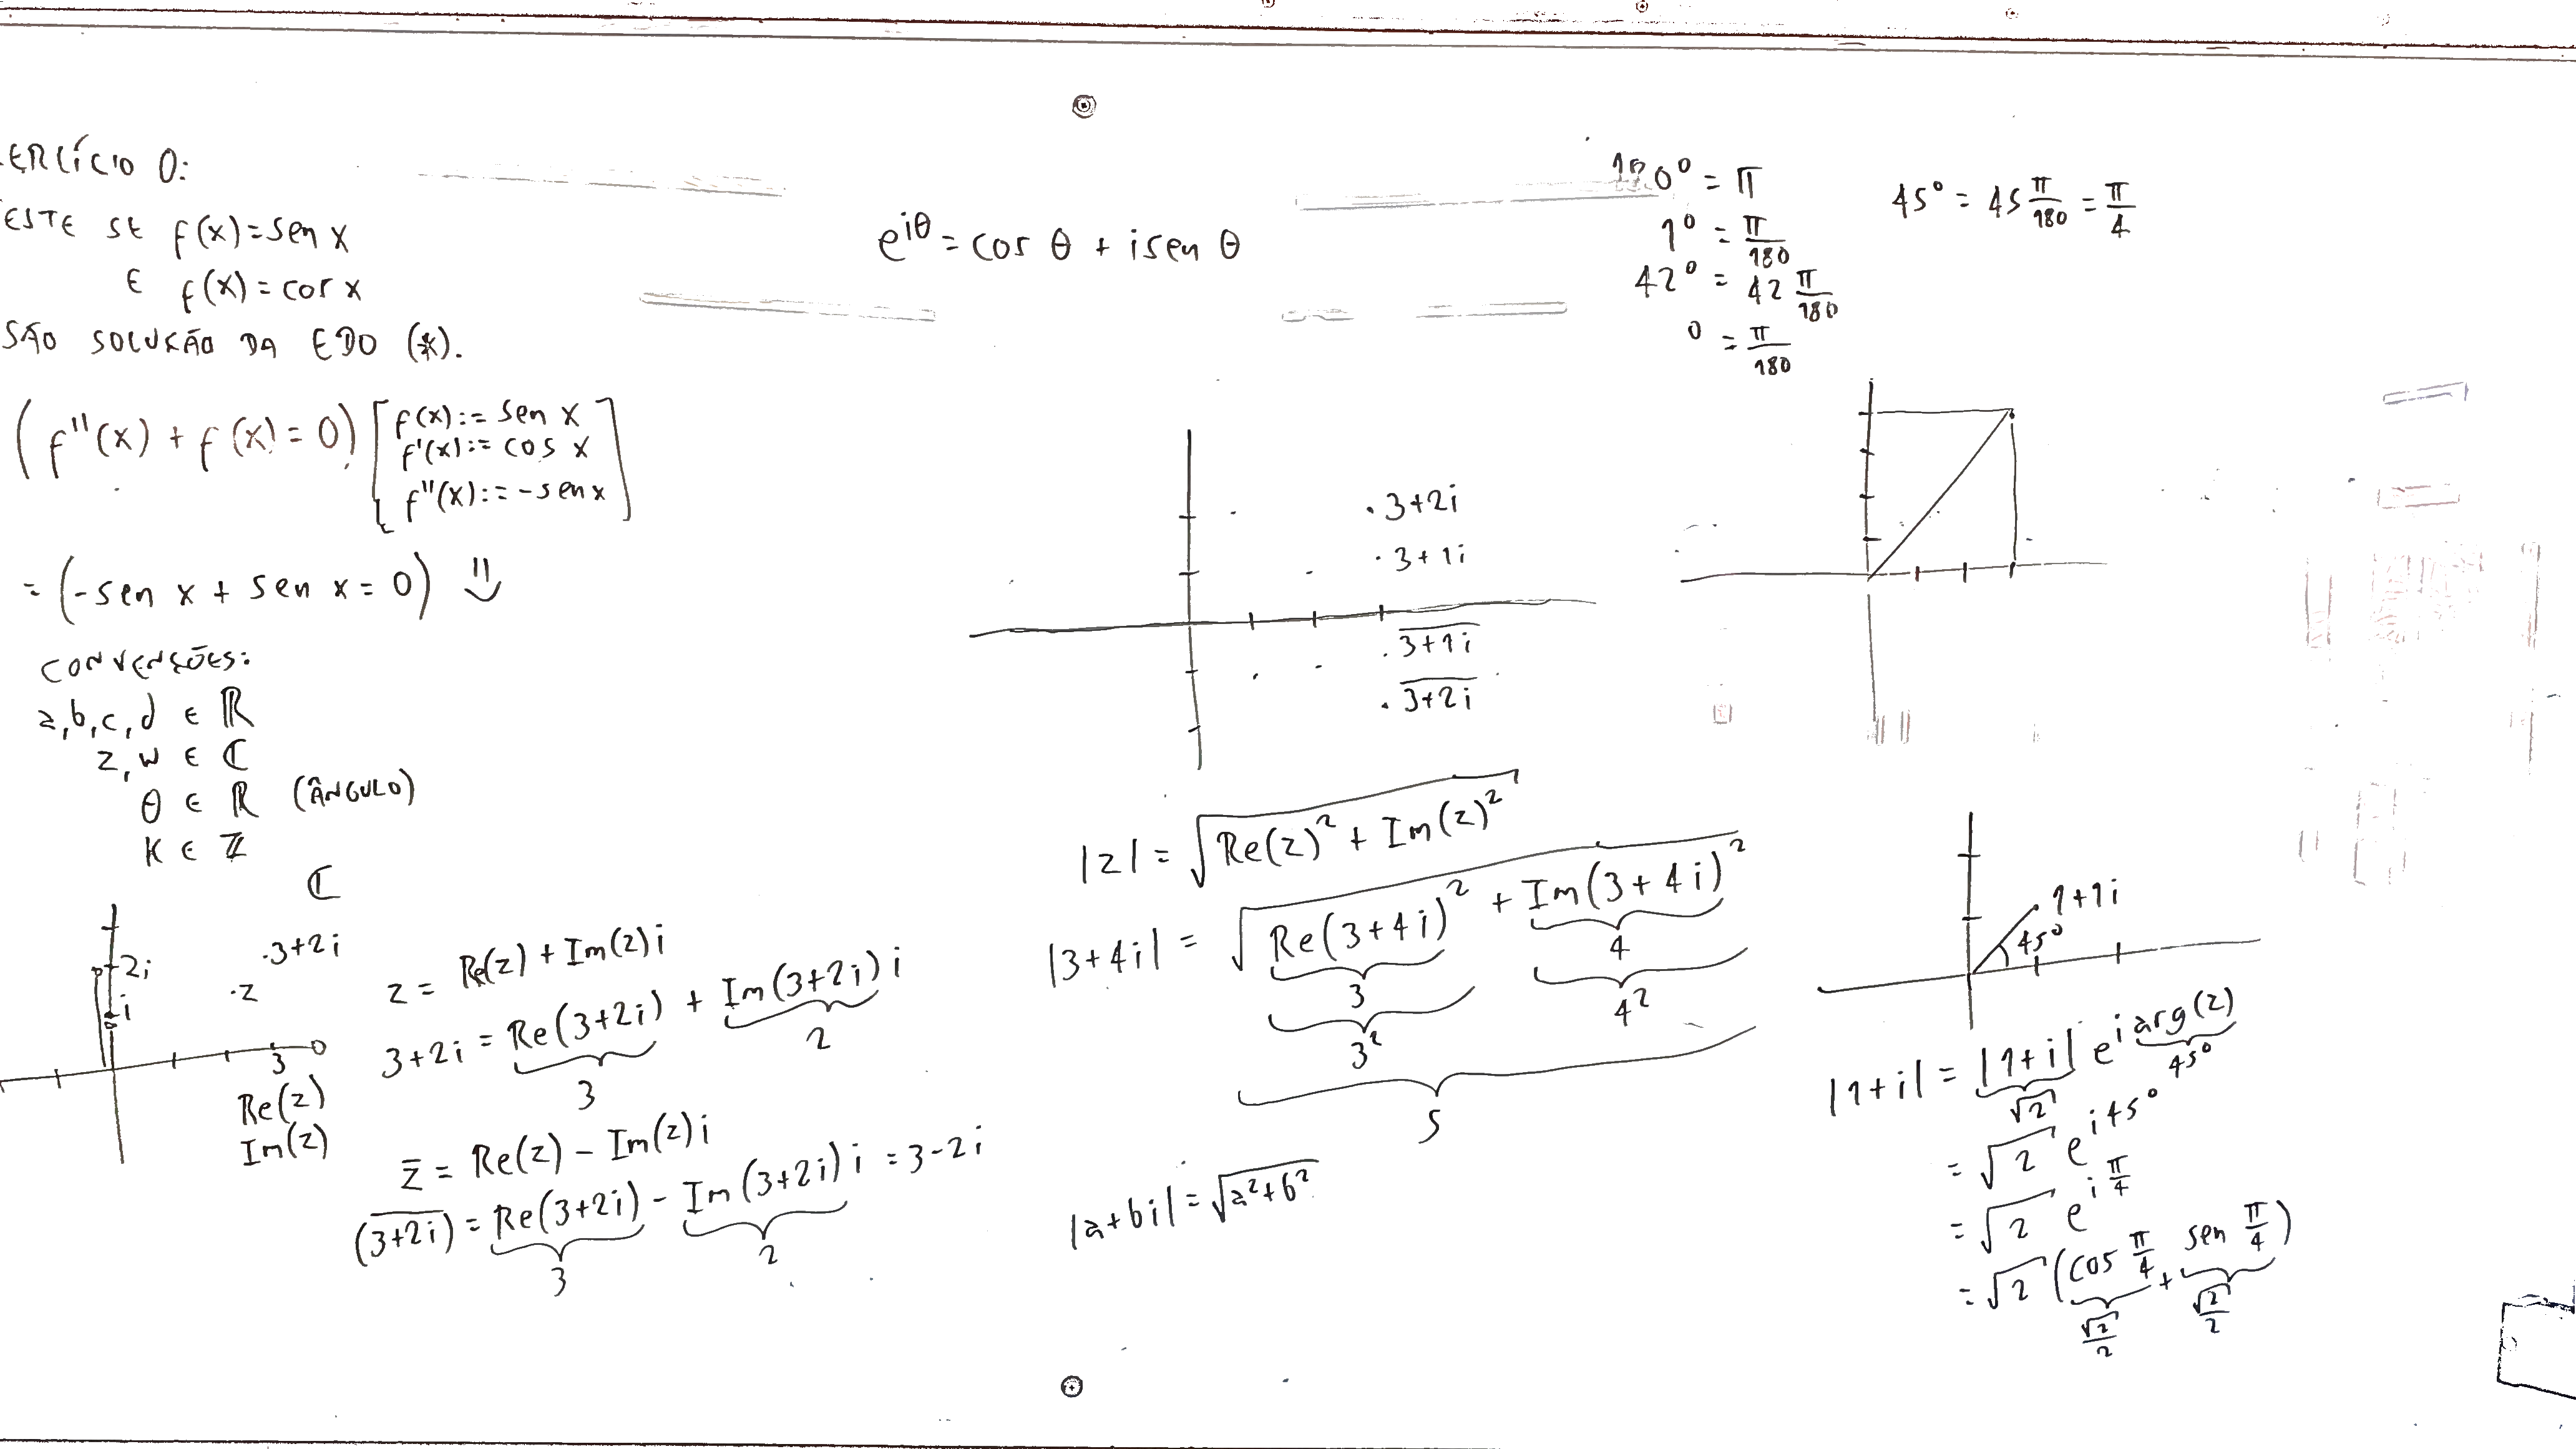 ERCÍCIO 0:
ESTE SE f(x)=sen x
E f(x)=cos x
SÃO SOLUÇÃO DA EDO (*).
(f''(x) + f(x) = 0) [f(x):= sen x
f'(x):= cos x
f''(x):= -sen x]
= (-sen x + sen x = 0) ü
CONVENÇÕES:
a,b,c,d ∈ ℝ
z,w ∈ ℂ
θ ∈ ℝ (ÂNGULO)
k ∈ ℤ
ℂ
2i
i
.3+2i
.z
3
Re(z)
Im(z)
z = Re(z) + Im(z)i
3+2i = Re(3+2i) + Im(3+2i) i
3
2
z̄ = Re(z) - Im(z)i
(\overline{3+2i}) = Re(3+2i) - Im(3+2i) i = 3-2i
3
2
e^{iθ} = cos θ + i sen θ
.3+2i
.3+1i
.\overline{3+1i}
.\overline{3+2i}
|z| = √(Re(z)² + Im(z)²)
|3+4i| = √(Re(3+4i)² + Im(3+4i)²)
3
4
3²
4²
5
|a+bi| = √(a²+b²)
180° = π
1° = π/180
42° = 42 π/180
° = π/180
45° = 45 π/180 = π/4
1+1i
45°
|1+i| = |1+i| e^{i arg(z)}
√2
45°
= √2 e^{i45°}
= √2 e^{i π/4}
= √2 (cos π/4 + sen π/4)
√2/2
√2/2